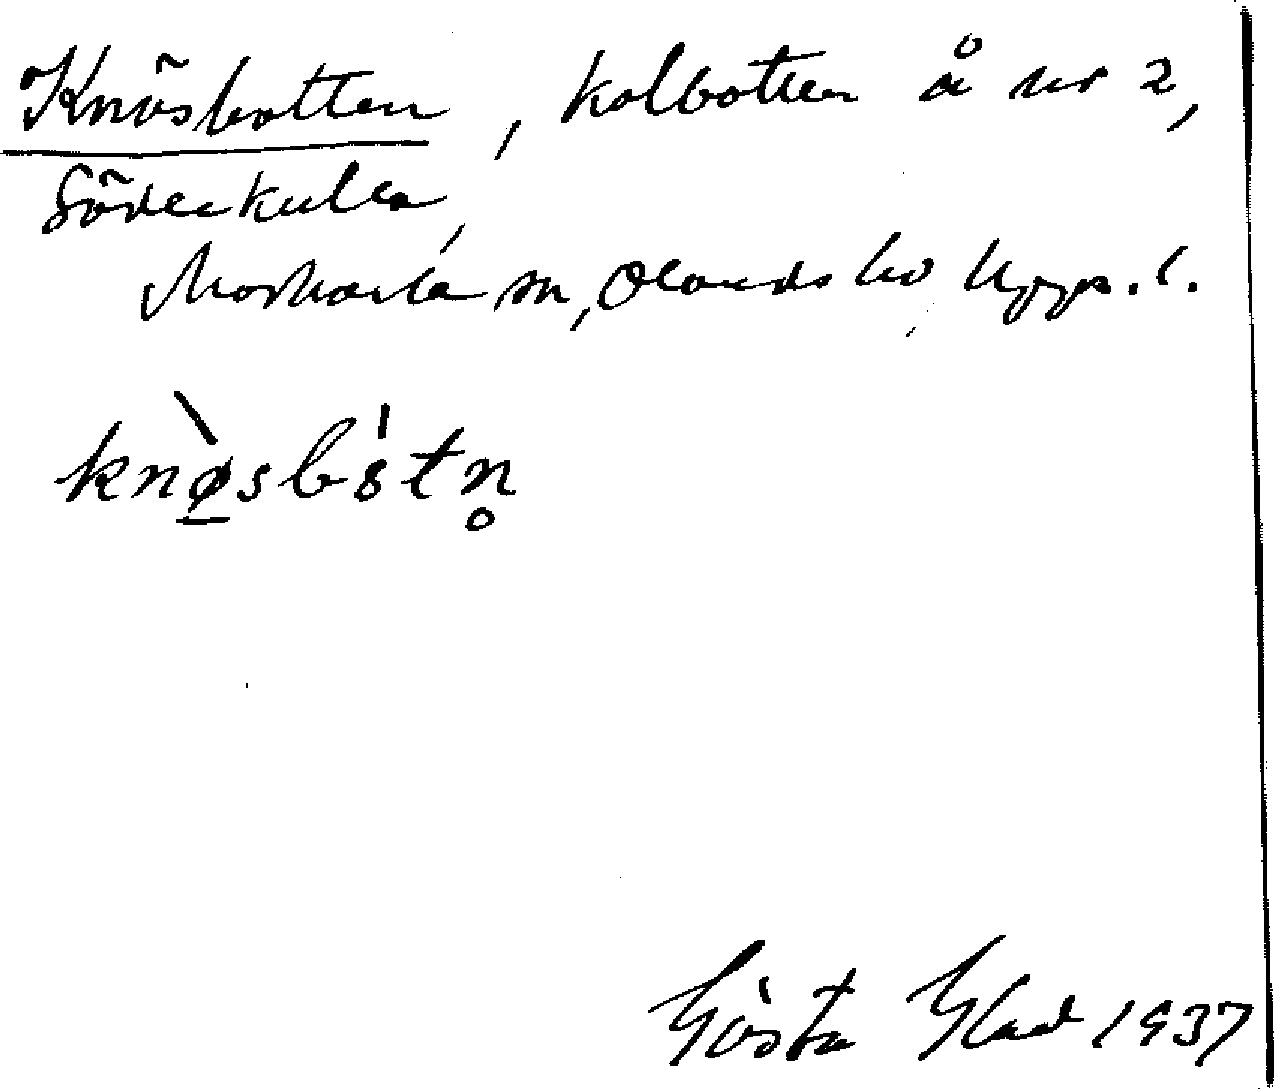 Knösbotten, kolbotten å nr 2,
Söderkulla,
Morkarla sn, Olands hd Upps. l.
knø̱̀sbòtn̥
Gösta Glad 1937